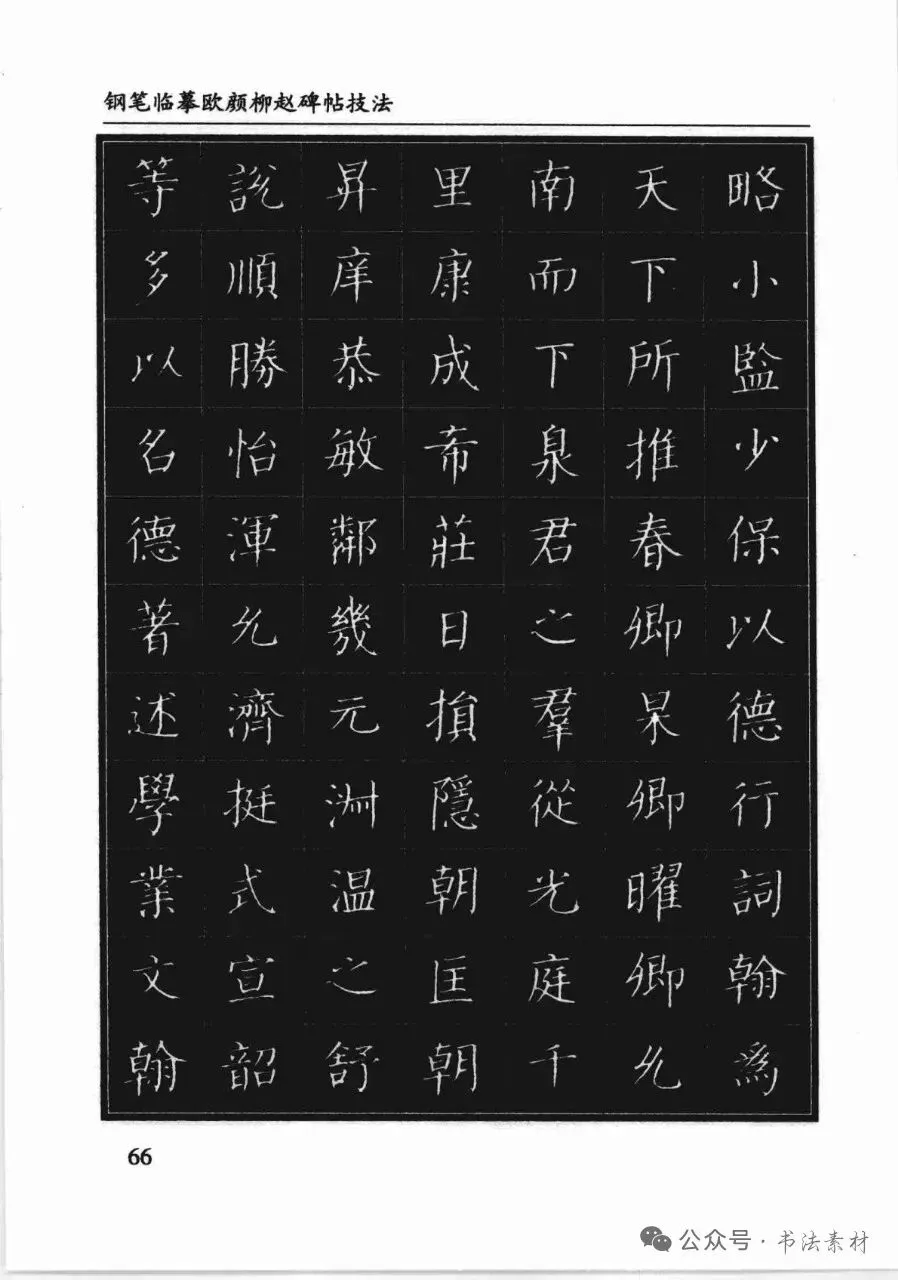 钢笔临摹欧颜柳赵碑帖技法
略小監少保以德行詞翰爲
天下所推春卿杲卿曜卿允
南而下泉君之羣從光庭千
里康成希莊日損隱朝匡朝
昇庠恭敏鄰幾元淵温之舒
說順勝怡渾允濟挺式宣韶
等多以名德著述學業文翰
66
公众号·书法素材